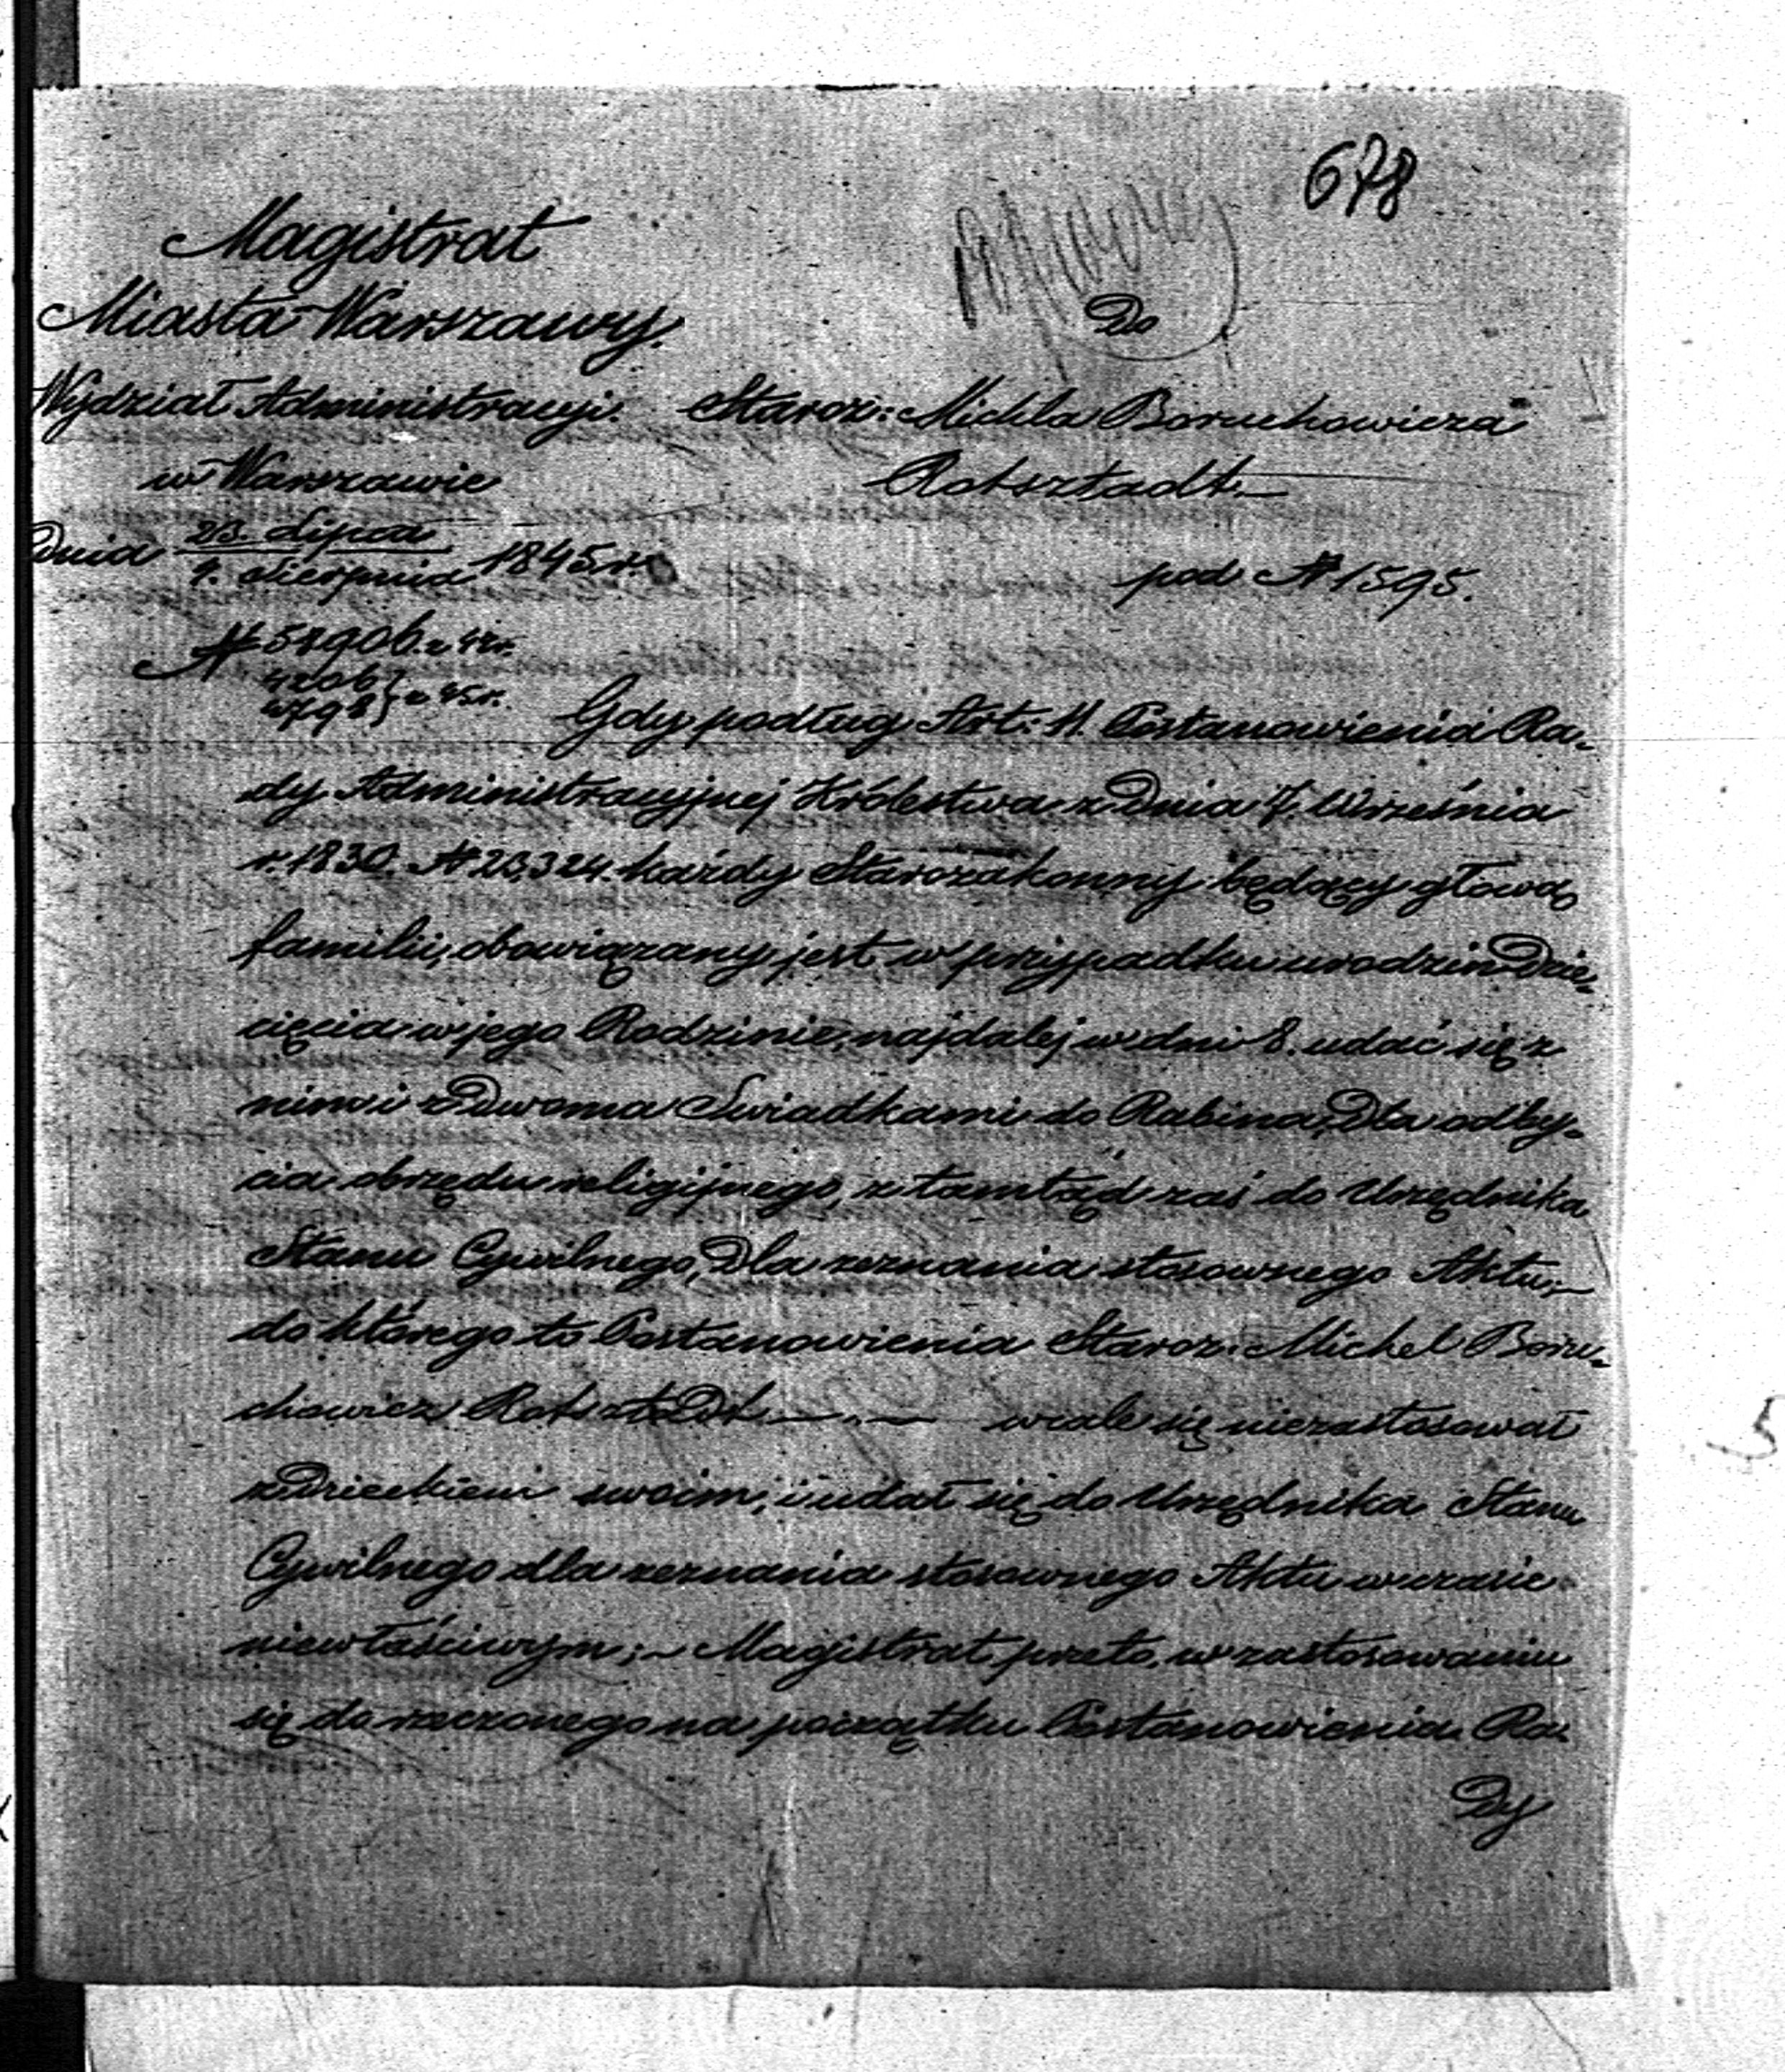 678
Magistrat
Miasta Warszawy.
Wydział Administracyi.
w Warszawie
Dnia 23. Lipca / 4. Sierpnia 1845 r.
Do
Staroz: Michla Boruchowicza
Rotsztadt
pod № 1595.
№
Gdy podług Art: 11. Postanowienia Ra-
dy Administracyjnej Królestwa z Dnia 7. Września
r. 1830. № 23,324. każdy Starozakonny będący głową
familii, obowiązany jest w przypadku urodzin Dzie-
cięcia w jego Rodzinie, najdalej w dni 8. udać się z
nim i z Dwoma Swiadkami do Rabina, Dla odby-
cia obrzędu religijnego, z tamtąd zaś do Urzędnika
Stanu Cywilnego, Dla zeznania stosownego Aktu,—
do którego to Postanowienia Staroz: Michel Boru-
chowicz Rotsztadt — „ — wcale się niezastosował
z Dzieckiem swoim, i udał się do Urzędnika Stanu
Cywilnego dla zeznania stosownego Aktu w czasie
niewłaściwym; – Magistrat przeto, w zastosowaniu
się do rzeczonego na początku Postanowienia Ra-
Dy